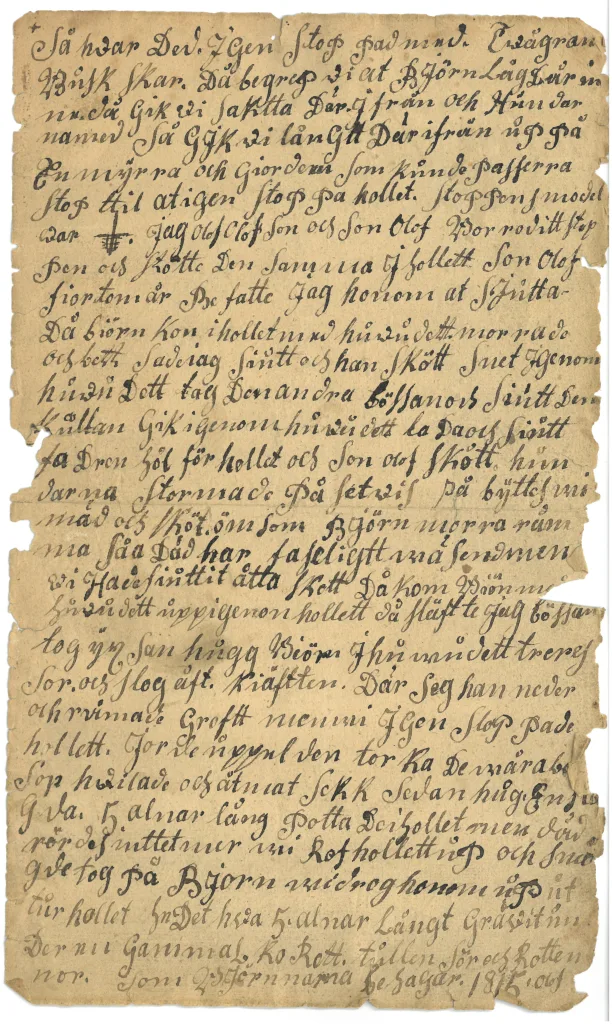 Så hwar Ded. Jgen Stop Pad med. Twägran
Busk skar. Då begrep wi at Björn Låg Där in
ne. då Gik wi saktta Där. J från och Hundar
na med Så GJk wi långtt Där ifrån up På
En myrra och Giordem Som kunde Passerra
Stop ttil at igen Stop Pa hollet. Stop Pens model
war. Jag Olof Olof Son och Son Olof Vor
Pen och Skötte Den Samma J hollett Son Olof
fiorton år Be fatte Jag honom at SJutta-
Då biörn kom i hollet med huwudett. morrade
och bett Sade iag Siutt och han Skött Snet JGenom
huwu Dett tag Den andra bössan och Siutt Den
Kultan Gik igenom huwudett la Da och Siutt
fa Dren höl för hollet och Son olof Skött. hun
darna Stormade På Set wis På byttes wi
mäd och Sköt. öm Som Björn morra
ma Såa Däd har faseligtt wäsend men
wi Hade Siuttit åtta Skott Då kom Biörn
huwudett upp igenon hollett då Släpte Jag bössan
tog yx San hugg Biörn J huwudett
Sor. och Slog aft. Kiäftten. Där Seg han neder
och rwimade Groftt men wi JGen Stop Pade
hollett. Jorde upp elden tor ka De
Sop hwilade och åt mat Sekk Sedan hug. En
G da. 5 alnar lång Potta De i hollet men däd
rördes inttet mer wi Rof hollett up och
gde tog På Bjorn wi drog honom up ut
tur hollet Det hwa 5. alnar Långt Gräwit
Der en Gammal ko Rott. tullen Sör och Rotten
nor. Som Björnnarna be hagar. 1815. af